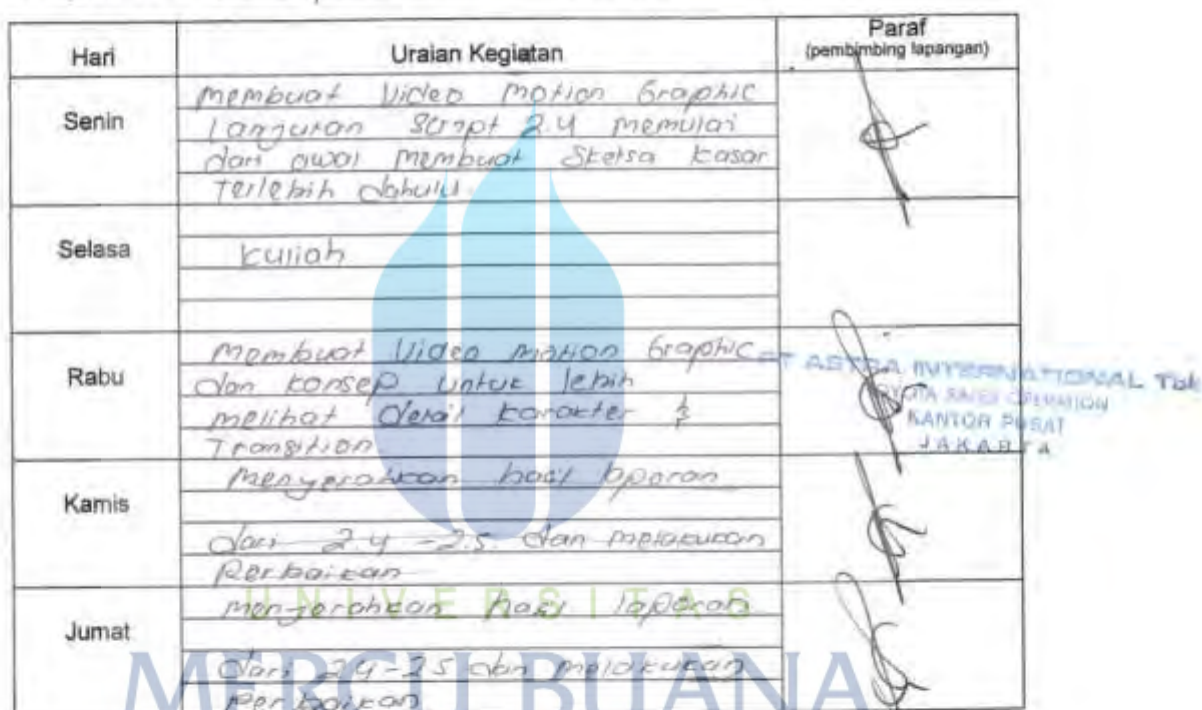 Hari Uraian Kegiatan Paraf
(pembimbing lapangan)
Senin
membuat Video Motion Graphic
lanjutan Script 2.4 memulai
dari awal membuat Sketsa kasar
Terlebih dahulu.
Selasa
kuliah
Rabu
Membuat Video Motion Graphic
dan konsep untuk lebih
melihat detail karakter &
Transition
PT ASTRA INTERNATIONAL Tbk
TOYOTA SALES OPERATION
KANTOR PUSAT
JAKARTA
Kamis
Menyerahkan hasil laporan
dari 2.4 - 2.5. dan melakukan
Perbaikan
Jumat
menyerahkan hasil laporan
dari 2.4-2.5 dan melakukan
Perbaikan
UNIVERSITAS
MERCU BUANA